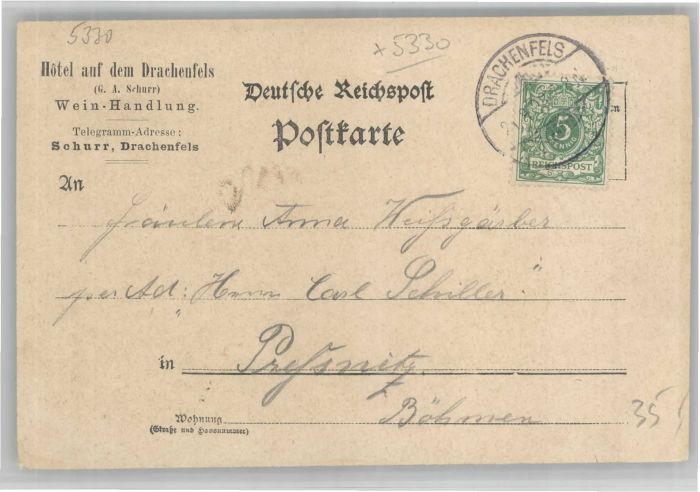 5330
×5330
Hôtel auf dem Drachenfels
(G. A. Schurr)
Wein-Handlung.
Telegramm-Adresse:
Schurr, Drachenfels
Deutsche Reichspost
Postkarte
DRACHENFELS
5
PFENNIG
REICHSPOST
An
Fräulein Anna Weißgärber
per Ad: "Herrn Carl Schiller"
in Preßnitz
Böhmen
Wohnung
(Straße und Hausnummer)
35